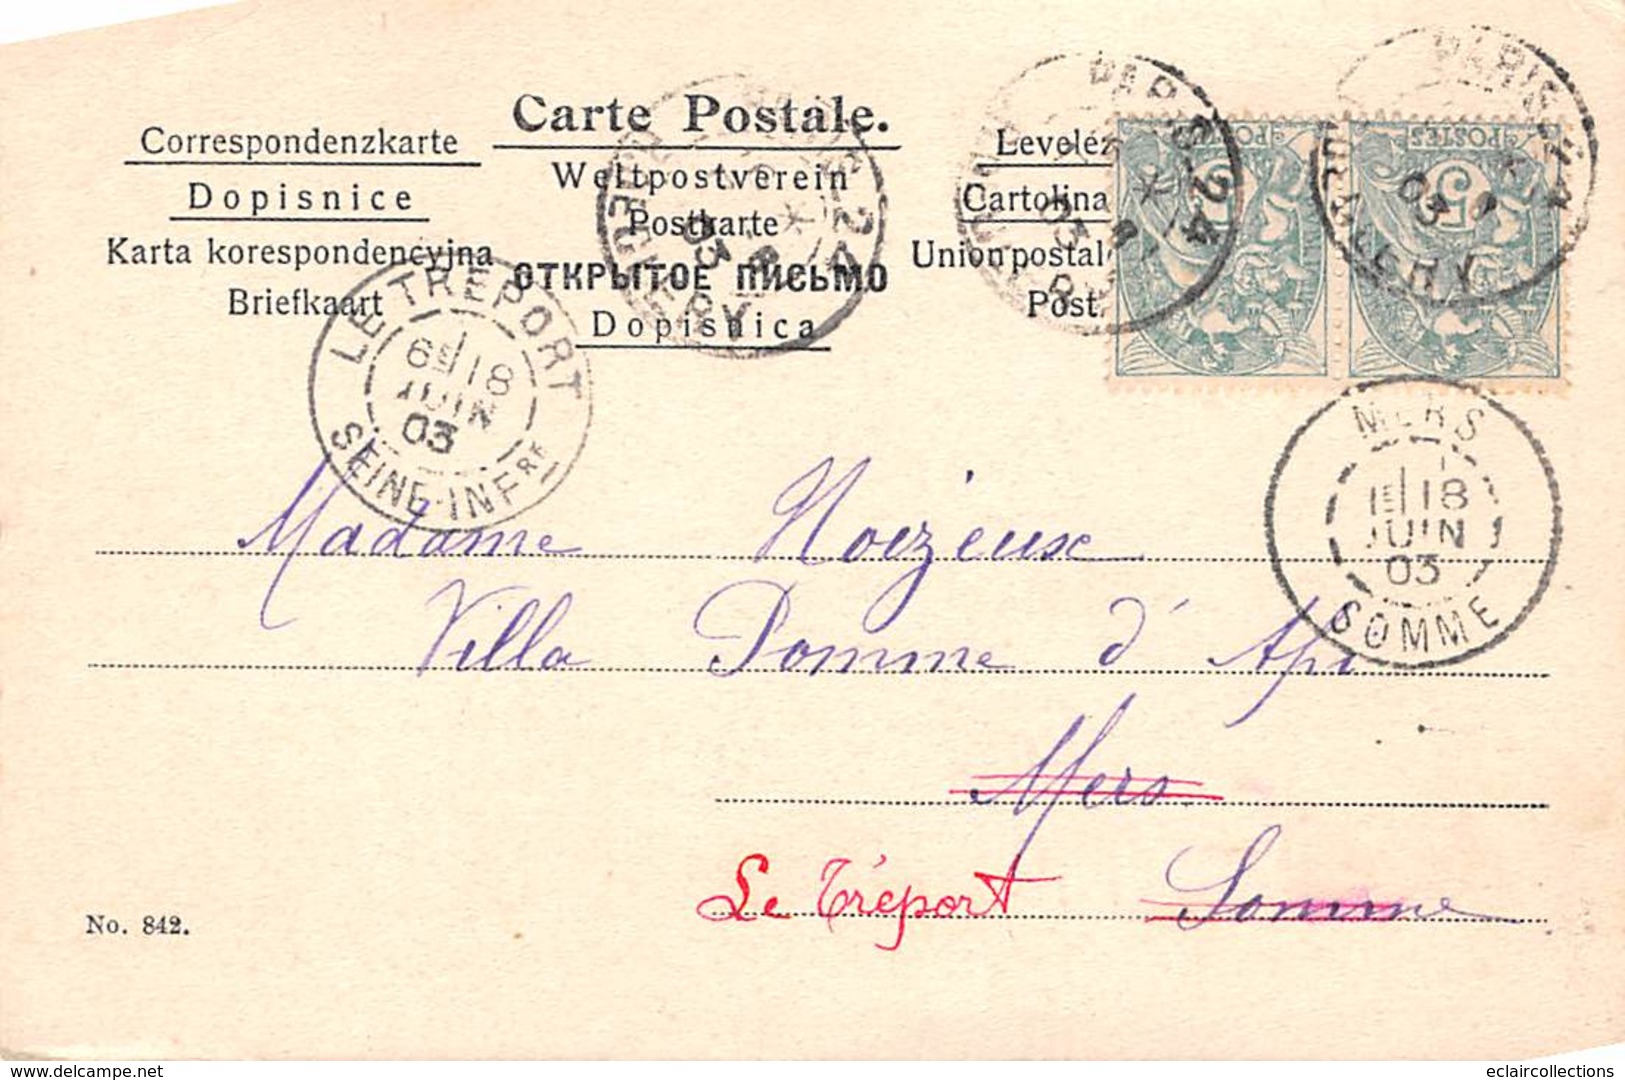 Carte Postale.
Correspondenzkarte
Dopisnice
Karta korespondencyjna
Briefkaart
Weltpostverein
Postkarte
ОТКРЫТОЕ ПИСЬМО
Dopisnica
Levelez
Cartolina
Union postal
Post.
PARIS 24
03
PARIS 24
03
PARIS 24
03
POSTES
5
POSTES
LE TREPORT
6E 18
JUIN
03
SEINE-INFRE
MERS
1E 18
JUIN
03
SOMME
Madame Noizeux
Villa Pomme d'Api
Mers
Le Tréport Somme
No. 842.
www.delcampe.net
eclaircollections